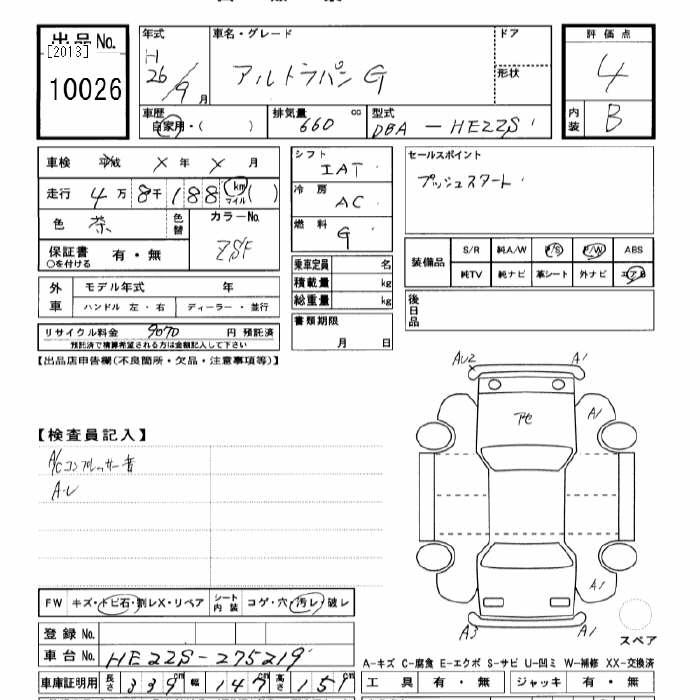 出品No.
[2013]
10026
年式
H
26/9月
車名・グレード
アルトラパン G
ドア
形状
評価点
4
内装
B
車歴
自家用・( )
排気量
660 cc
型式
DBA - HE22S
車検 平成 X 年 X 月
走行 4万8千188 km マイル ( )
色 茶
色替
カラーNo.
ZSF
保証書
○を付ける
有・無
シフト
IAT
冷房
AC
燃料
G
セールスポイント
プッシュスタート
装備品
S/R 純A/W P/S P/W ABS
純TV 純ナビ 革シート 外ナビ エアB
外車
モデル年式 年
ハンドル 左・右
ディーラー・並行
乗車定員 名
積載量 kg
総重量 kg
後日品
リサイクル料金 9070 円 預託済
預託済で精算希望される方は金額記入して下さい
書類期限
月 日
【出品店申告欄(不良箇所・欠品・注意事項等)】
AU2
A1
A1
【検査員記入】
A/Cコンプレッサー音
A・U
A1
A3
A1
スペア
FW キズ・トビ石・割レX・リペア
シート内装
コゲ・穴・汚レ・破レ
登録No.
車台No. HE22S-275219
車庫証明用 長さ 339 cm 幅 147 cm 高さ 151 cm
A-キズ C-腐食 E-エクボ S-サビ U-凹ミ W-補修 XX-交換済
工具 有・無
ジャッキ 有・無